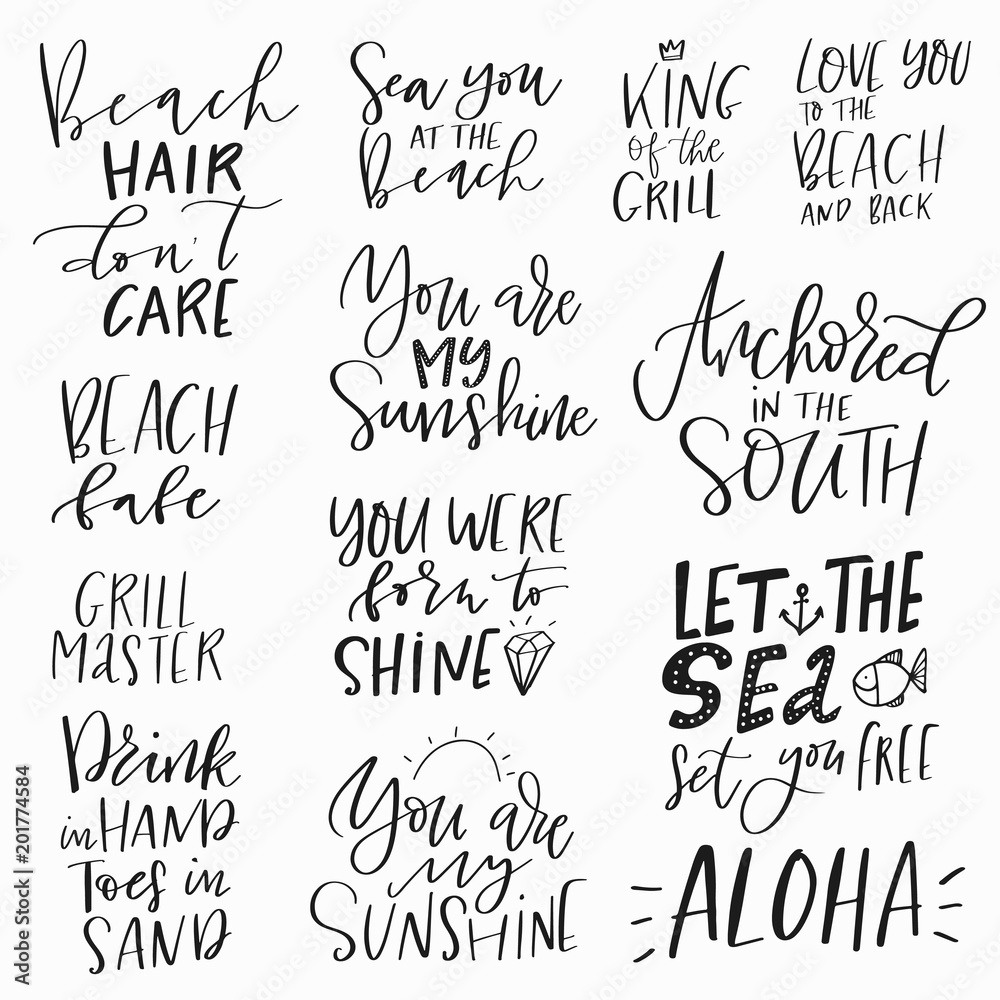 Beach
HAIR
don't
CARE
BEACH
babe
GRILL
MaSTER
Drink
in HAND
Toes in
SAND
Sea you
AT THE
Beach
You are
MY
Sunshine
YOU WERE
born to
SHINE
You are
my
SUNSHINE
KING
of the
GRILL
LOVE YOU
TO THE
BEACH
AND BACK
Anchored
IN THE
SOUTH
LET THE
SEa
set you FREE
ALOHA
Adobe Stock | #201774584